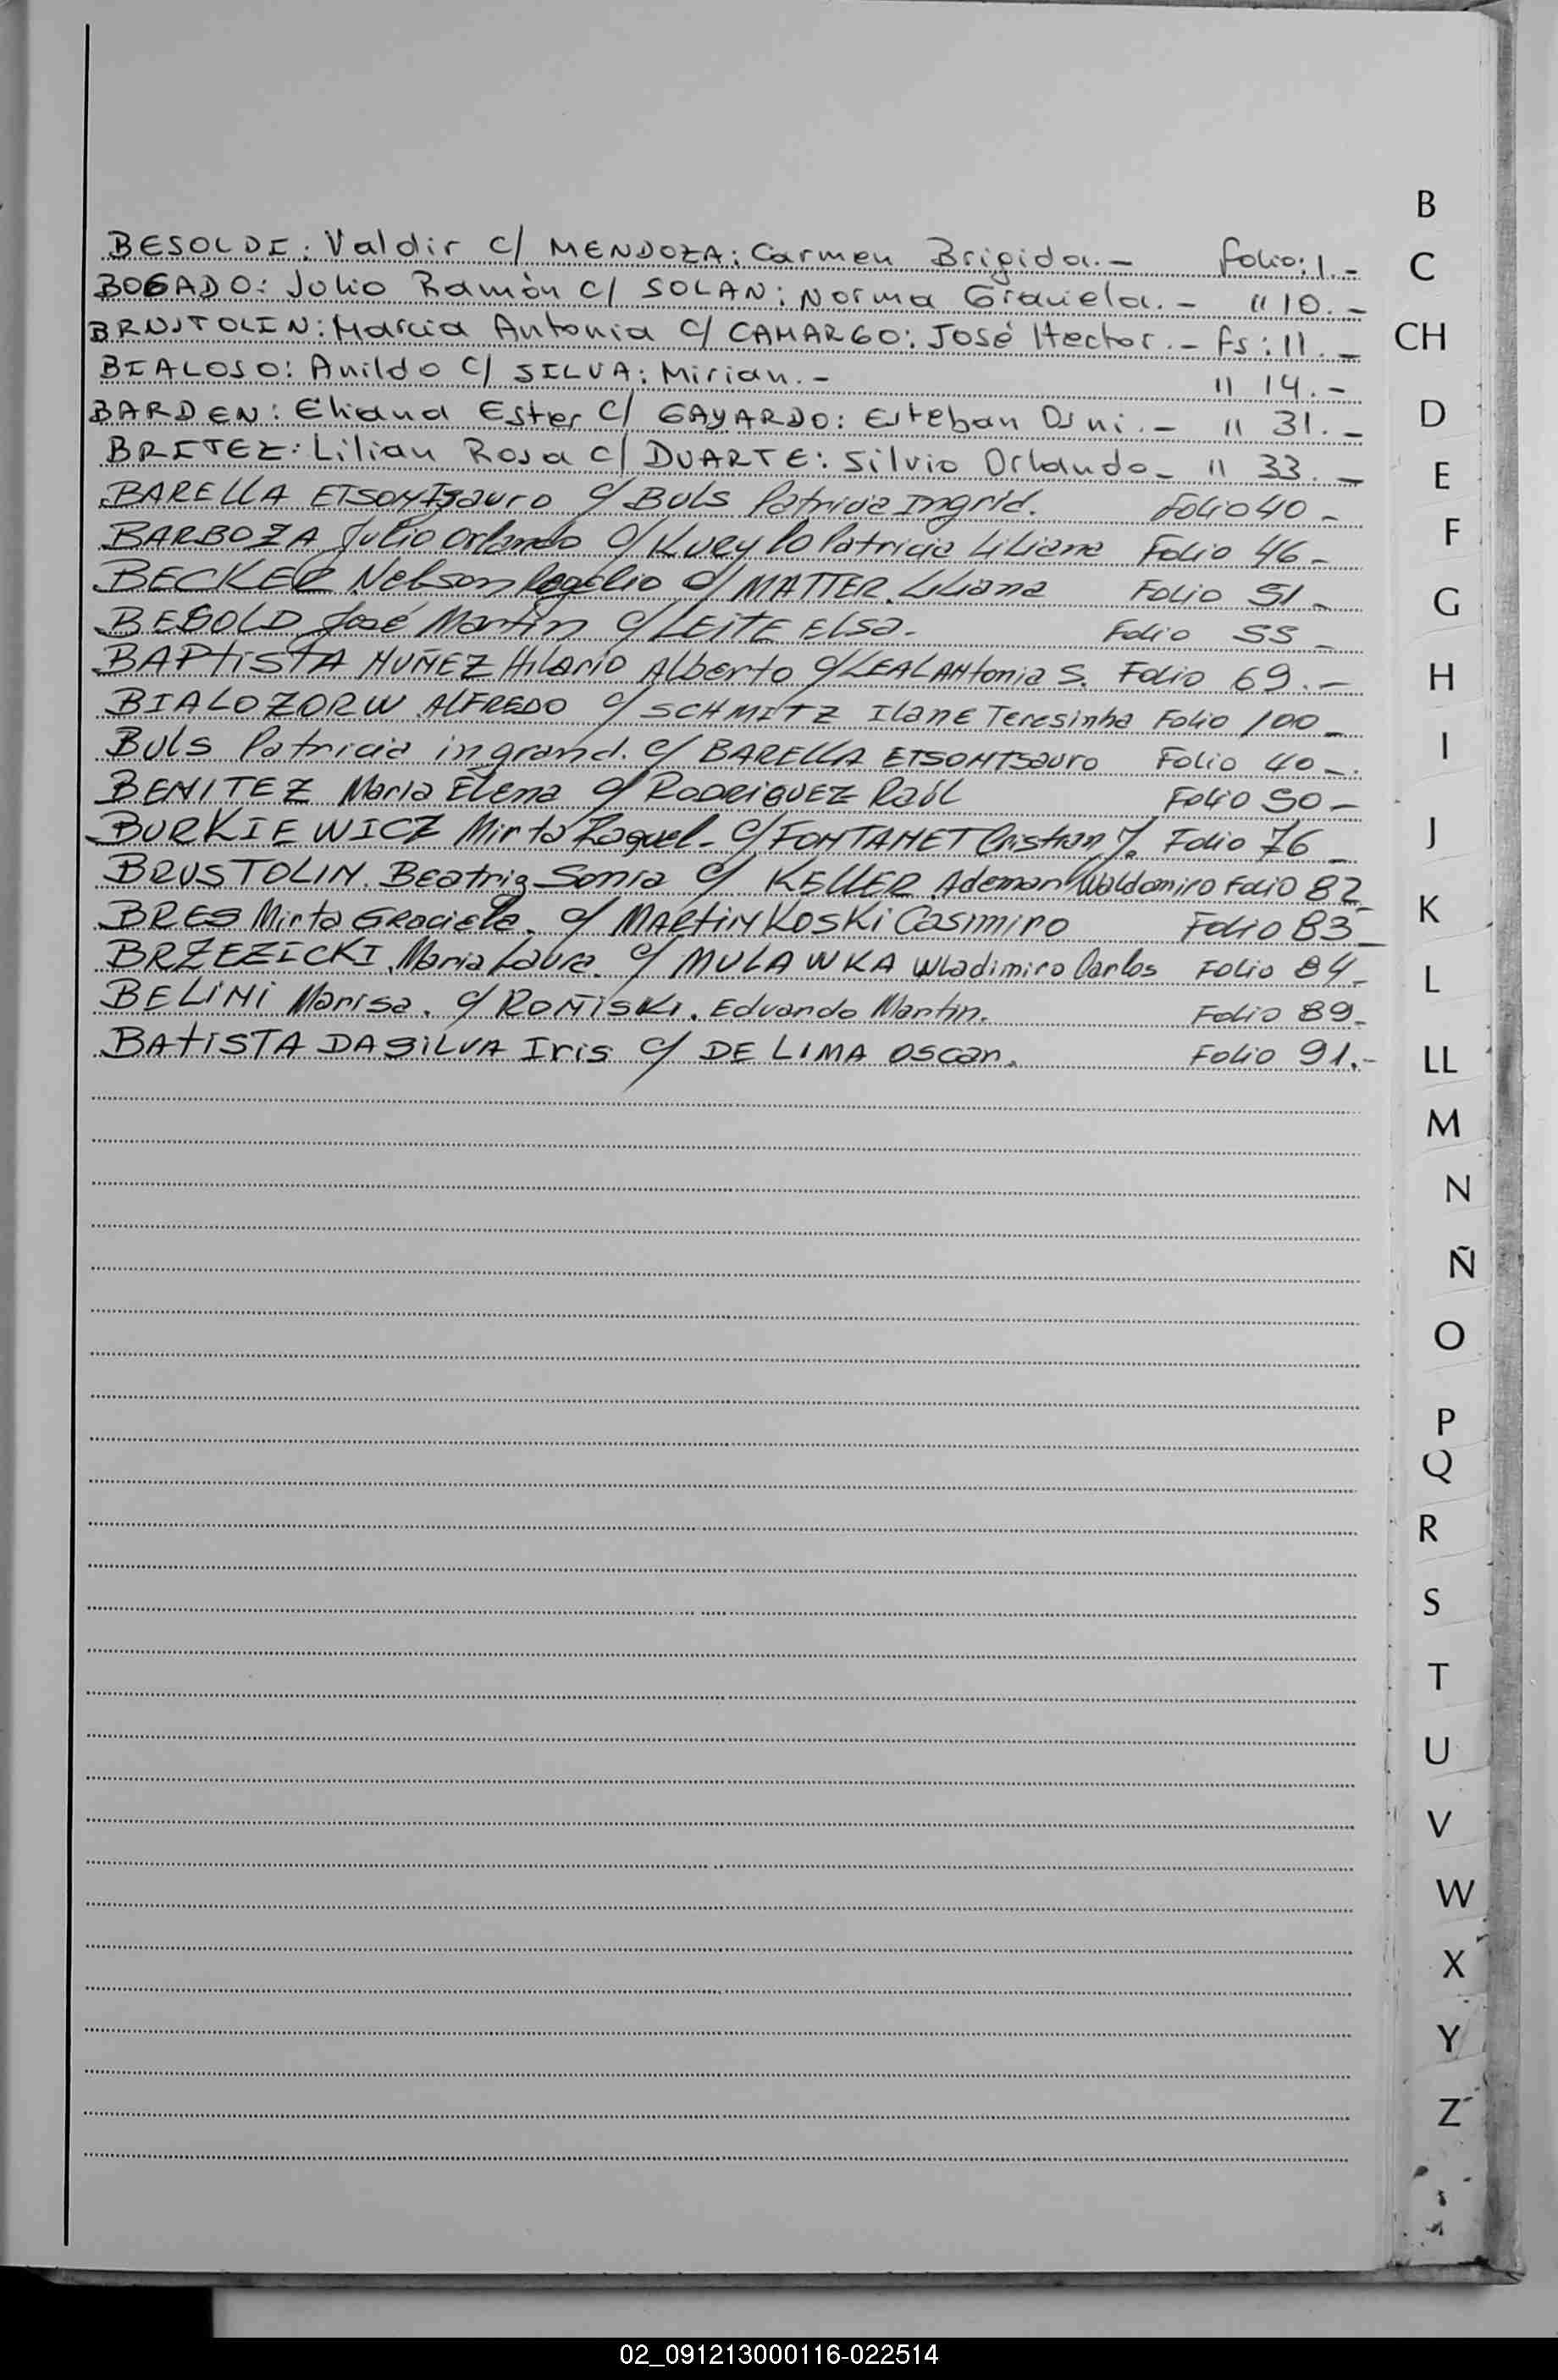 BESOLDI: Valdir c/ MENDOZA: Carmen Brigida.- folio: 1.-
BOGADO: Julio Ramón c/ SOLAN: Norma Graciela.- " 10.-
BRUSTOLIN: Marcia Antonia c/ CAMARGO: José Hector.- fs: 11.-
BIALOSO: Anildo c/ SILVA: Mirian.- " 14.-
BARDEN: Eliana Ester c/ GAYARDO: Esteban Osni.- " 31.-
BRITEZ: Lilian Rosa c/ DUARTE: Silvio Orlando- " 33.-
BARELLA ETSOMTsauro c/ Buls Patricia Ingrid. Folio 40-
BARBOZA Julio Orlando c/ Patricia Liliana Folio 46-
BECKER Nelson Rogelio c/ MATTER. Liliana Folio 51-
BESOLD José Martin c/ LEITE Elsa. Folio 55-
BAPTISTA NUÑEZ Hilario Alberto c/ LEAL Antonia S. Folio 69.-
BIALOZORW ALFREDO c/ SCHMITZ Ilane Teresinha Folio 100-
Buls Patricia ingrand. c/ BARELLA ETSOMTsauro Folio 40-.
BENITEZ Maria Elena c/ RODRIGUEZ Raúl Folio 50-
BURKIEWICZ Mirta Raquel- c/ FONTANET Cristian J. Folio 76-
BRUSTOLIN. Beatriz Sonia c/ KELLER. Ademar Waldomiro Folio 82-
BRES Mirta Graciela. c/ MARTINKOSKI Casimiro Folio 83-
BRZEZICKI. Maria Laura. c/ MULAWKA Wladimiro Carlos Folio 84-
BELINI Marisa. c/ ROÑISKI. Eduardo Martin. Folio 89-
BATISTA DASILVA Iris c/ DE LIMA Oscar. Folio 91.-
B
C
CH
D
E
F
G
H
I
J
K
L
LL
M
N
Ñ
O
P
Q
R
S
T
U
V
W
X
Y
Z
02_091213000116-022514